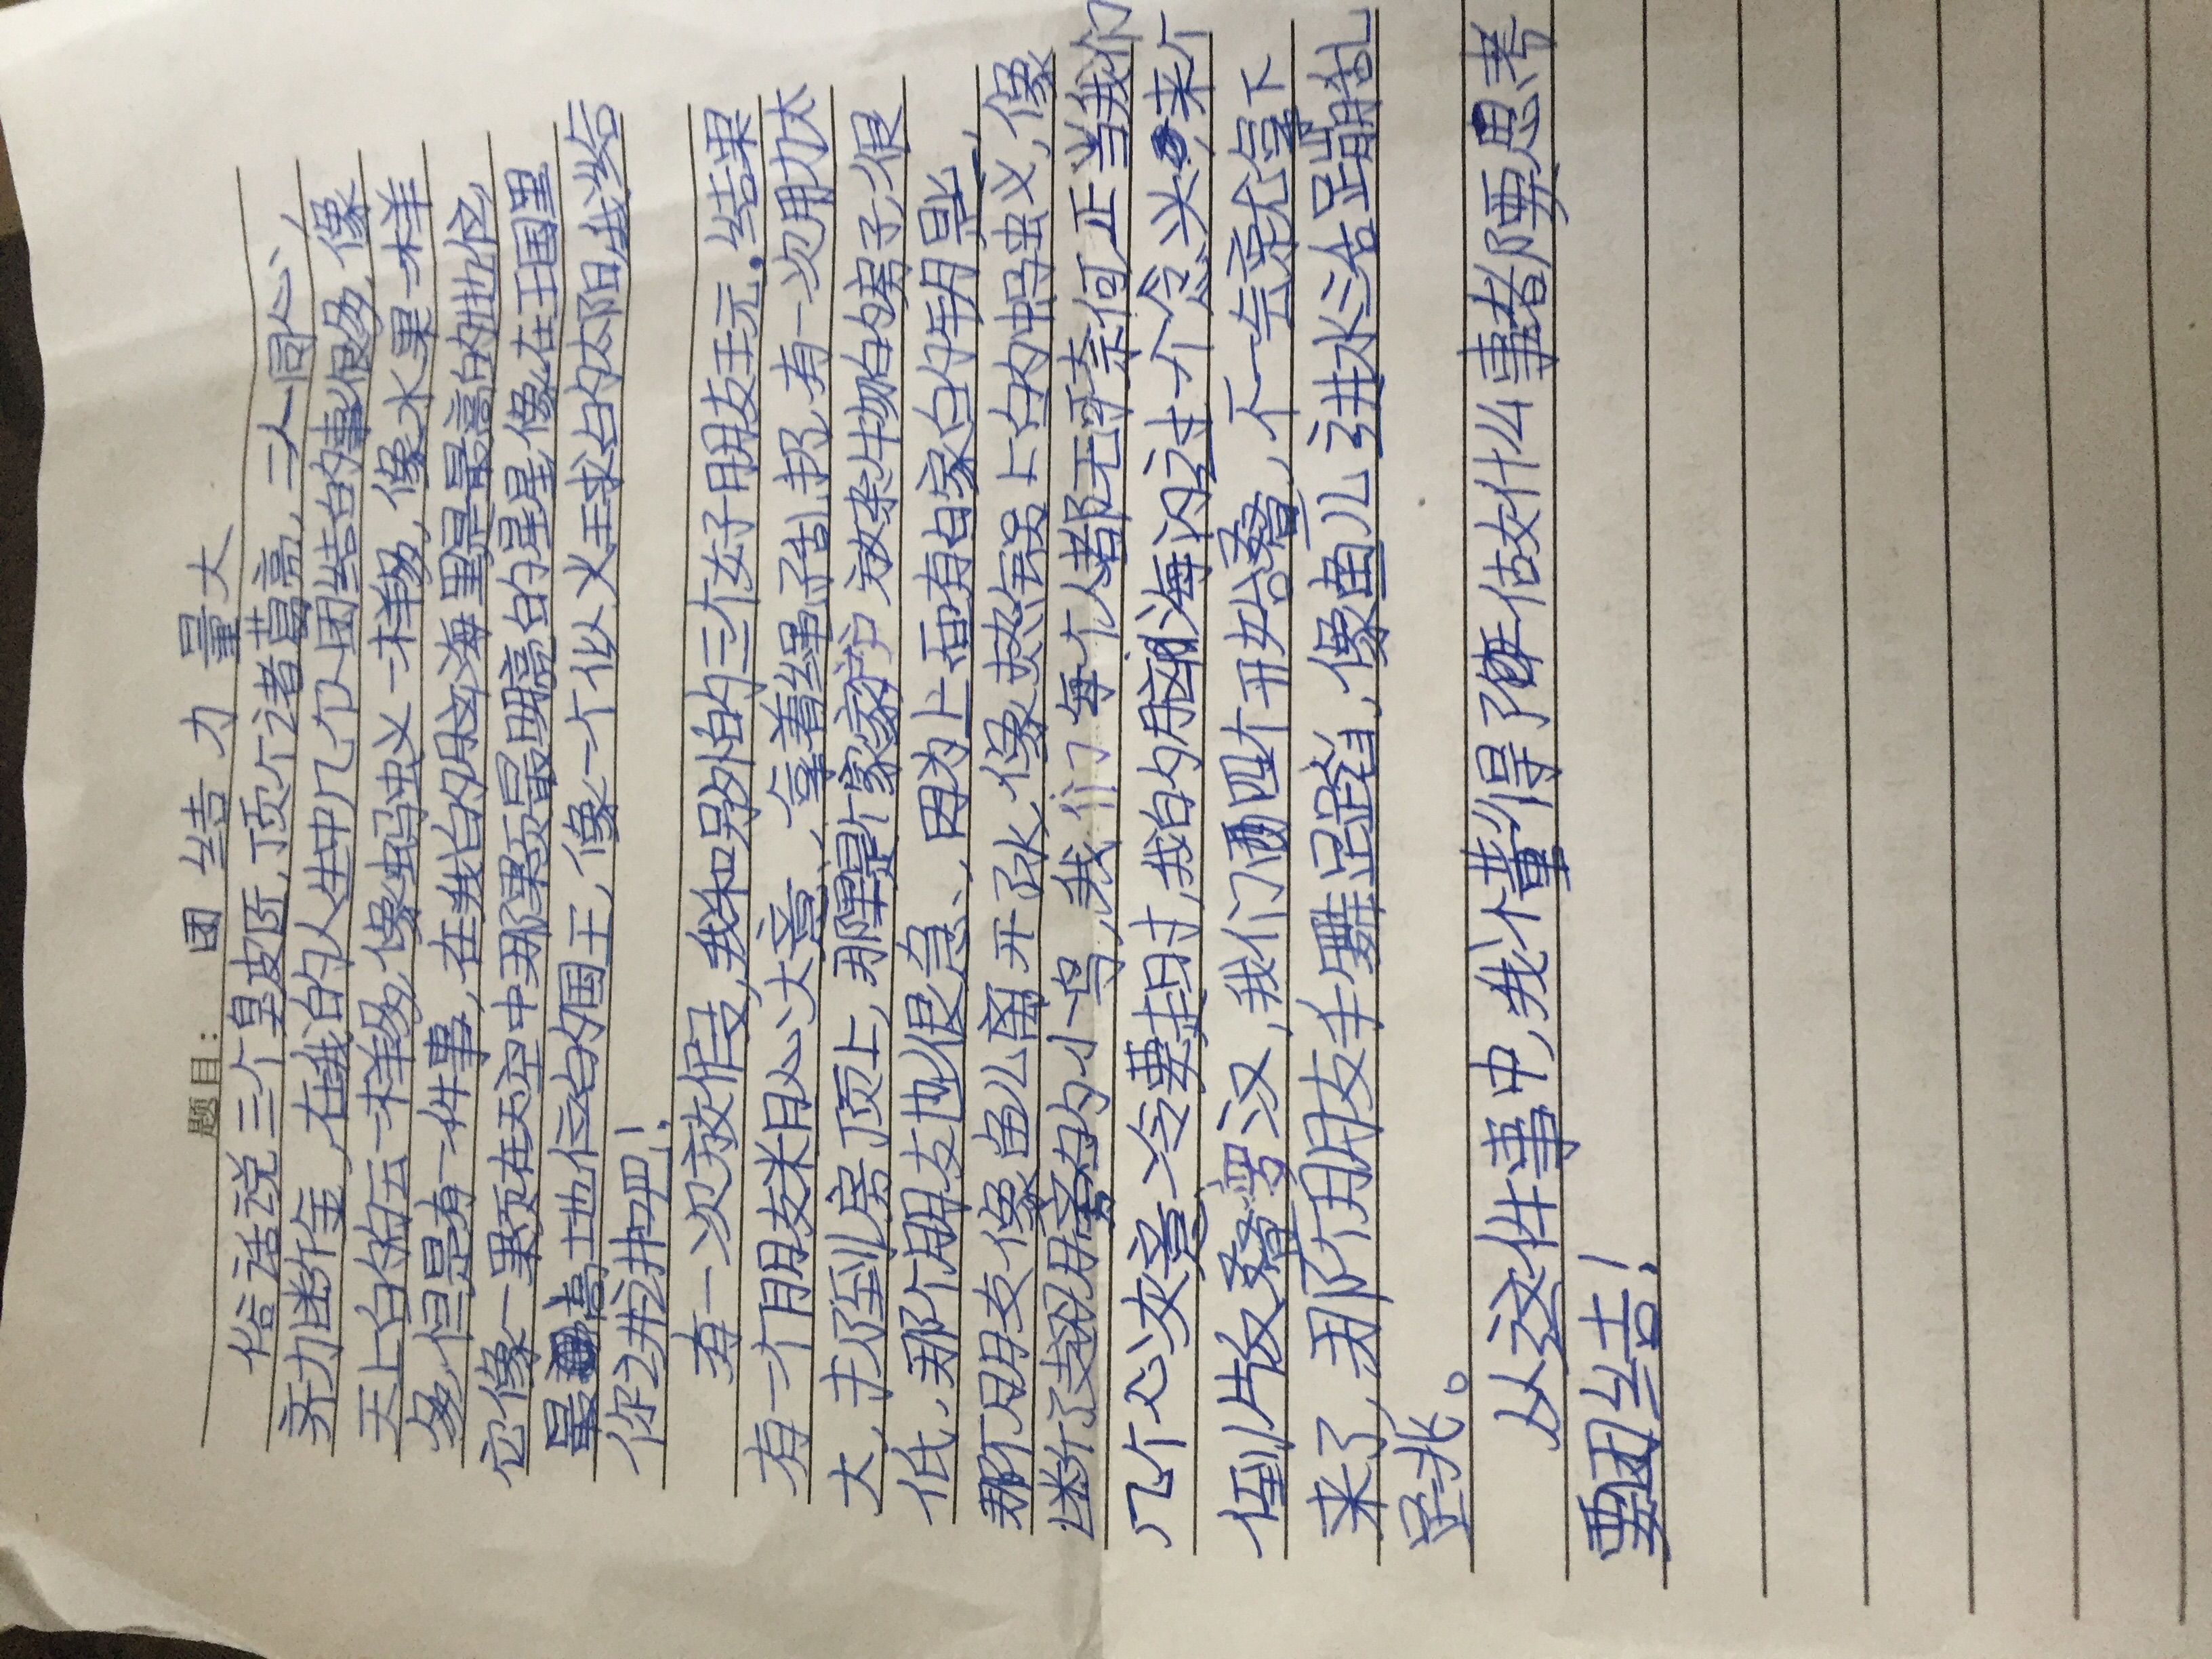 题目：团结力量大
俗话说三个臭皮匠，顶个诸葛亮，二人同心，
齐力断金，在我的人生中几个团结的事很多，像
天上的的云一样多，像蚂蚁一样多，像水果一样
多，但是有一件事，在我的脑海里是最高的地位，
它像一颗在天空中那颗最最高的星星，像在王国里
最高地位的国王，像一个似火球的太阳，我来给
你讲讲吧！
有一次放假，我和另外的三位好朋友玩，结果
有一个朋友粗心大意，拿着绳子乱甩，有一次用力太
大，扔到房顶上，那里是家放杂物的房子，很
低，那个朋友也很急，因为上面有家的钥匙，
那个朋友像鱼儿离开了水，像热锅上的蚂蚁，像
断了翅膀的小鸟，我们每个人都无可奈何，正当我们
几个心灰意冷要走时，我的脑海闪过一个念头，来个
倒叠罗汉，我们四个开始叠，不一会就拿下
来了，那个朋友手舞足蹈，像鱼儿进水活蹦乱
跳。
从这件事中，我懂得了做什么事都要思考
要团结！